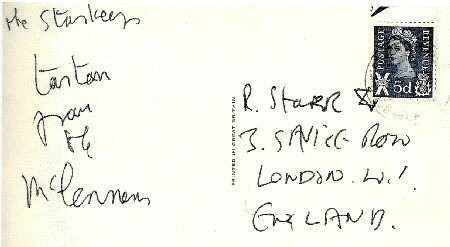 The Starkeys
tartan
from
the
McLennons
PRINTED IN GREAT BRITAIN
POSTAGE
REVENUE
5d
R. STARR ☆
3. SAVILE ROW
LONDON. W.1.
ENGLAND.